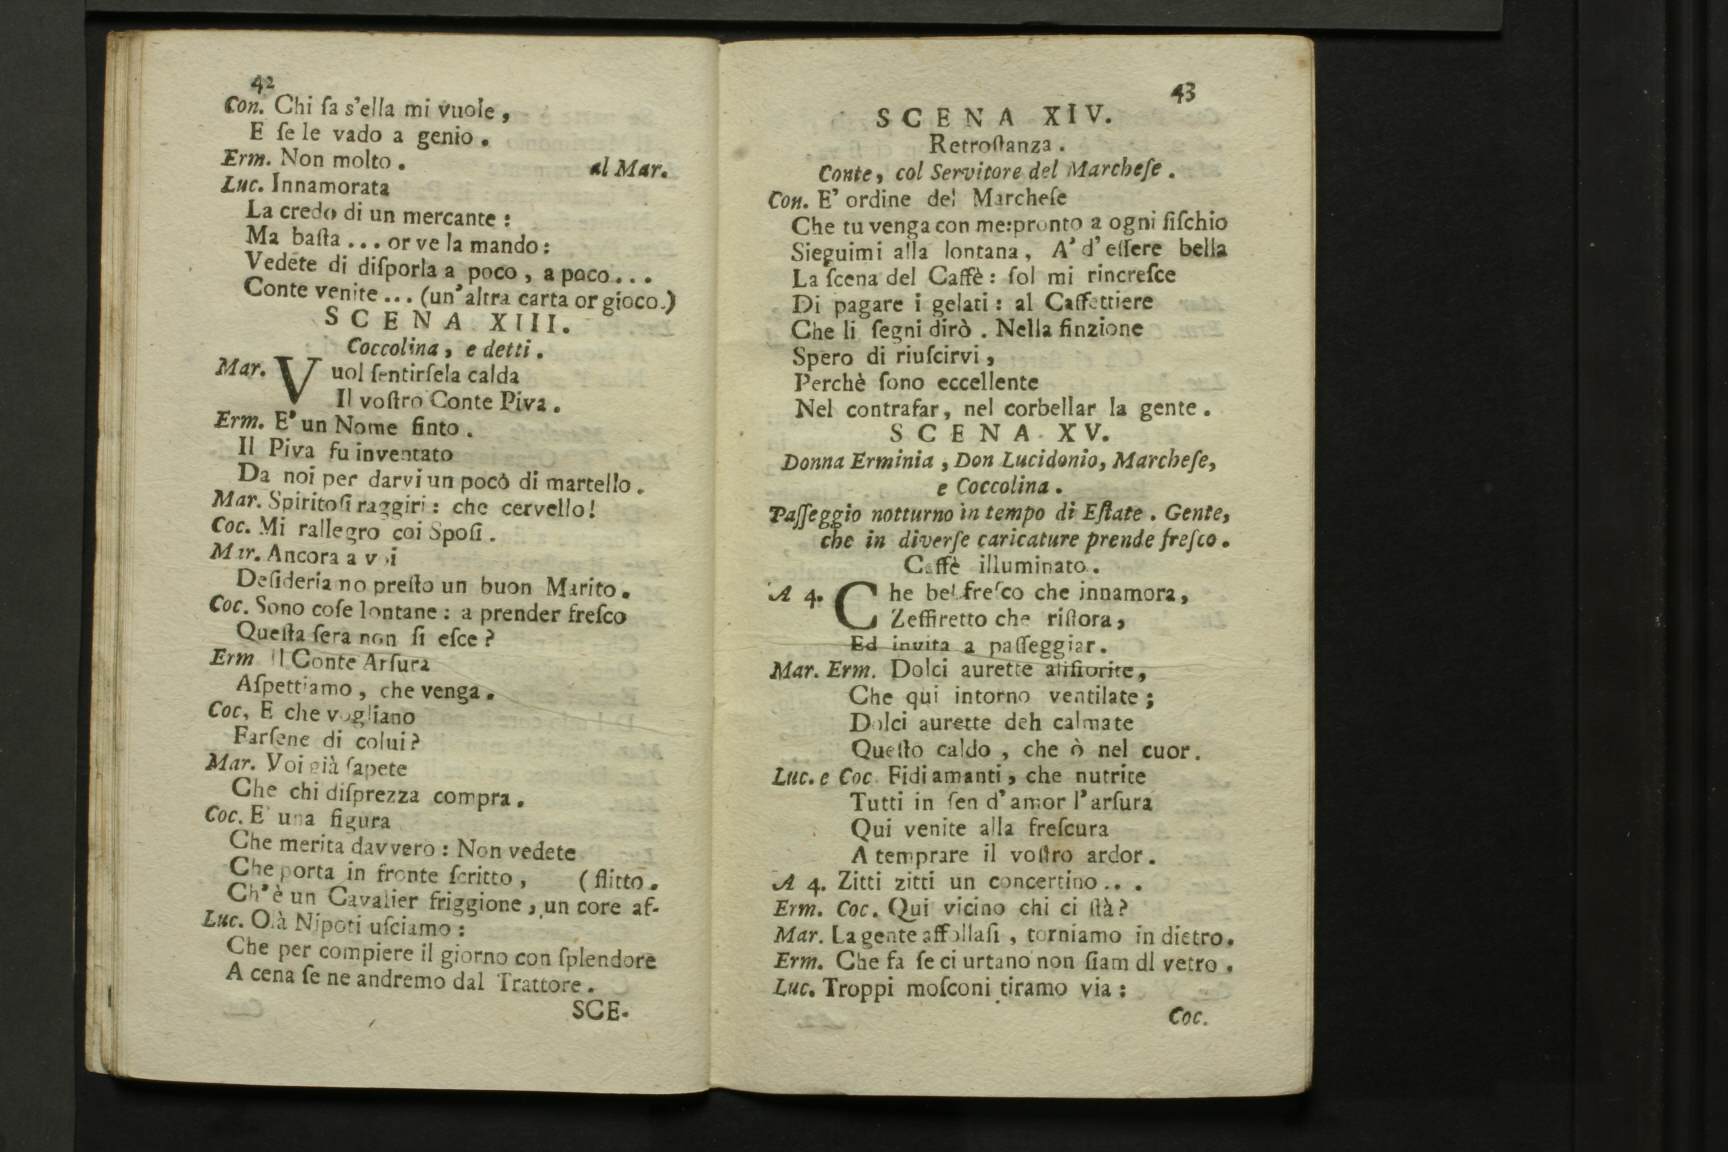 42
Con. Chi ſa s'ella mi vuole,
E ſe le vado a genio.
Erm. Non molto. al Mar.
Luc. Innamorata
La credo di un mercante:
Ma baſta ... or ve la mando:
Vedete di diſporla a poco, a poco...
Conte venite ... (un'altra carta or gioco.)
SCENA XIII.
Coccolina, e detti.
Mar. Vuol ſentirſela calda
Il voſtro Conte Piva.
Erm. E' un Nome finto.
Il Piva fu inventato
Da noi per darvi un pocò di martello.
Mar. Spiritoſi raggiri: che cervello!
Coc. Mi rallegro coi Spoſi.
Mar. Ancora a voi
Deſideriamo preſto un buon Marito.
Coc. Sono coſe lontane: a prender freſco
Queſta ſera non ſi eſce?
Erm Il Conte Arſura
Aſpettiamo, che venga.
Coc, E che vogliano
Farſene di colui?
Mar. Voi già ſapete
Che chi diſprezza compra.
Coc. E' una figura
Che merita davvero: Non vedete
Che porta in fronte ſcritto, (flitto.
Ch'è un Cavalier friggione, un core af-
Luc. Olà Nipoti uſciamo:
Che per compiere il giorno con ſplendore
A cena ſe ne andremo dal Trattore.
SCE-
43
SCENA XIV.
Retroſtanza.
Conte, col Servitore del Marcheſe.
Con. E' ordine del Marcheſe
Che tu venga con me:pronto a ogni fiſchio
Sieguimi alla lontana, A' d'eſſere bella
La ſcena del Caffè: ſol mi rincreſce
Di pagare i gelati: al Caffettiere
Che li ſegni dirò. Nella finzione
Spero di riuſcirvi,
Perchè ſono eccellente
Nel contrafar, nel corbellar la gente.
SCENA XV.
Donna Erminia, Don Lucidonio, Marcheſe,
e Coccolina.
Paſſeggio notturno in tempo di Eſtate. Gente,
che in diverſe caricature prende freſco.
Caffè illuminato.
A 4. Che bel freſco che innamora,
Zeffiretto che riſtora,
Ed invita a paſſeggiar.
Mar. Erm. Dolci aurette
Che qui intorno ventilate;
Dolci aurette deh calmate
Queſto caldo, che ò nel cuor.
Luc. e Coc. Fidi amanti, che nutrite
Tutti in ſen d'amor l'arſura
Qui venite alla freſcura
A temprare il voſtro ardor.
A 4. Zitti zitti un concertino...
Erm. Coc. Qui vicino chi ci ſtà?
Mar. La gente affollaſi, torniamo in dietro.
Erm. Che fa ſe ci urtano non ſiam dl vetro.
Luc. Troppi moſconi tiramo via:
Coc.